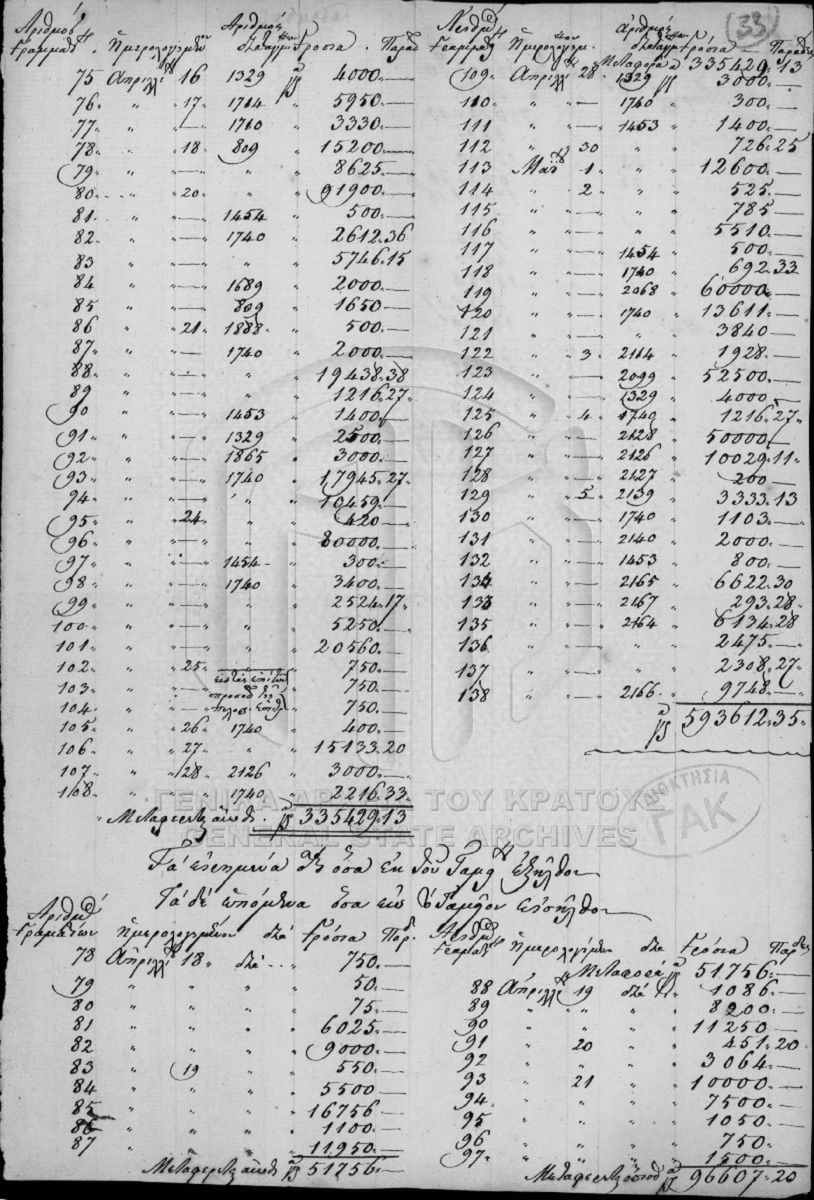 (33)
Ἀριθμὸς Γραμμάτ. Ἡμερολογημένων Ἀριθμὸς Διαταγῶν Γρόσια Παράδ
75 Ἀπριλλ 16 1329 4000.—
76 " " 17 1714 " 5950.—
77 " " — 1710 " 3330.—
78 " " 18 809 " 15200.—
79 " " — " " 8625.—
80 " " 20 " " 91900.—
81 " " — 1454 " 500.—
82 " " — 1740 " 2612.36
83 " " — " " 5746.15
84 " " — 1689 " 2000.—
85 " " — 809 " 1650.—
86 " " 21 1888 " 500.—
87 " " — 1740 " 2000.—
88 " " — " " 19438.38
89 " " — " " 1216.27
90 " " — 1453 " 1400.—
91 " " — 1329 " 2500.—
92 " " — 1865 " 3000.—
93 " " — 1740 " 17945.27
94 " " — " " 10459.—
95 " " 24 " " 420.—
96 " " — " " 80000.—
97 " " — 1454 " 300.—
98 " " — 1740 " 3400.—
99 " " — " " 2524.17
100 " " — " " 5250.—
101 " " — " " 20560.—
102 " " 25 750.—
103 " " — 750.—
104 " " — 750.—
105 " " 26 1740 " 400.—
106 " " 27 " " 15133.20
107 " " 28 2126 " 3000.—
108 " " " 1740 " 2216.33
Μεταφέρεται 335429.13
Ἀριθμ Γραμμάτ Ἡμερολογημ. Ἀριθμὸς Διαταγῶν Γρόσια Παράδες
Μεταφορὰ 335429.13
109 Ἀπριλλ 28 1329 3000.—
110 " " — 1740 " 300.—
111 " " — 1453 " 1400.—
112 " " 30 " " 726.25
113 Μαΐ 1 " " 12600.—
114 " " 2 " " 525.—
115 " " — " " 785—
116 " " — " " 5510.—
117 " " — 1454 " 500.—
118 " " — 1740 " 692.33
119 " " — 2068 " 60000.—
120 " " — 1740 " 13611.—
121 " " — " " 3840—
122 " " 3 2164 " 1928.—
123 " " — 2099 " 52500.—
124 " " — 1329 " 4000.—
125 " " 4 1740 " 1216.27
126 " " — 2128 " 50000.—
127 " " — 2126 " 10029.11
128 " " — 2127 " 200—
129 " " 5 2139 " 3333.13
130 " " — 1740 " 1103.—
131 " " — 2140 " 2000.—
132 " " — 1453 " 800.—
134 " " — 2165 " 6622.30
133 " " — 2167 " 293.28
135 " " — 2164 " 6134.28
136 " " — " " 2475.—
137 " " — " " 2308.27
138 " " — 2166 " 9748.—
593612.35
ΓΕΝΙΚΑ ΑΡΧΕΙΑ ΤΟΥ ΚΡΑΤΟΥΣ
GENERAL STATE ARCHIVES
ΙΔΙΟΚΤΗΣΙΑ ΓΑΚ
Τὰ εἰρημένα ὅσα ἐκ τοῦ Ταμ ἐξῆλθον
Τὰ δὲ ἑπόμενα ὅσα εἰς Ταμεῖον εἰσῆλθον
Ἀριθμ Γραμμάτων Ἡμερολογημένων διὰ Γρόσια Παρ
78 Ἀπριλλ 18 διὰ 750.—
79 " " " " 50.—
80 " " " " 75.—
81 " " " " 6025.—
82 " " " " 9000.—
83 " 19 " " 550.—
84 " " " " 5500—
85 " " " " 16756—
86 " " " " 1100.—
87 " " " " 11950.—
Μεταφέρεται 51756.—
Ἀριθμ Γραμμάτ Ἡμερολογημένων διὰ Γρόσια Παράδες
Μεταφορὰ 51756.—
88 Ἀπριλλ 19 διὰ 1086.—
89 " " " " 8200.—
90 " " " " 11250—
91 " 20 " " 451.20
92 " " " " 3064.—
93 " 21 " " 10000.—
94 " " " " 7500.—
95 " " " " 1050.—
96 " " " " 750.—
97 " " " " 1500.—
Μεταφέρεται 96607.20